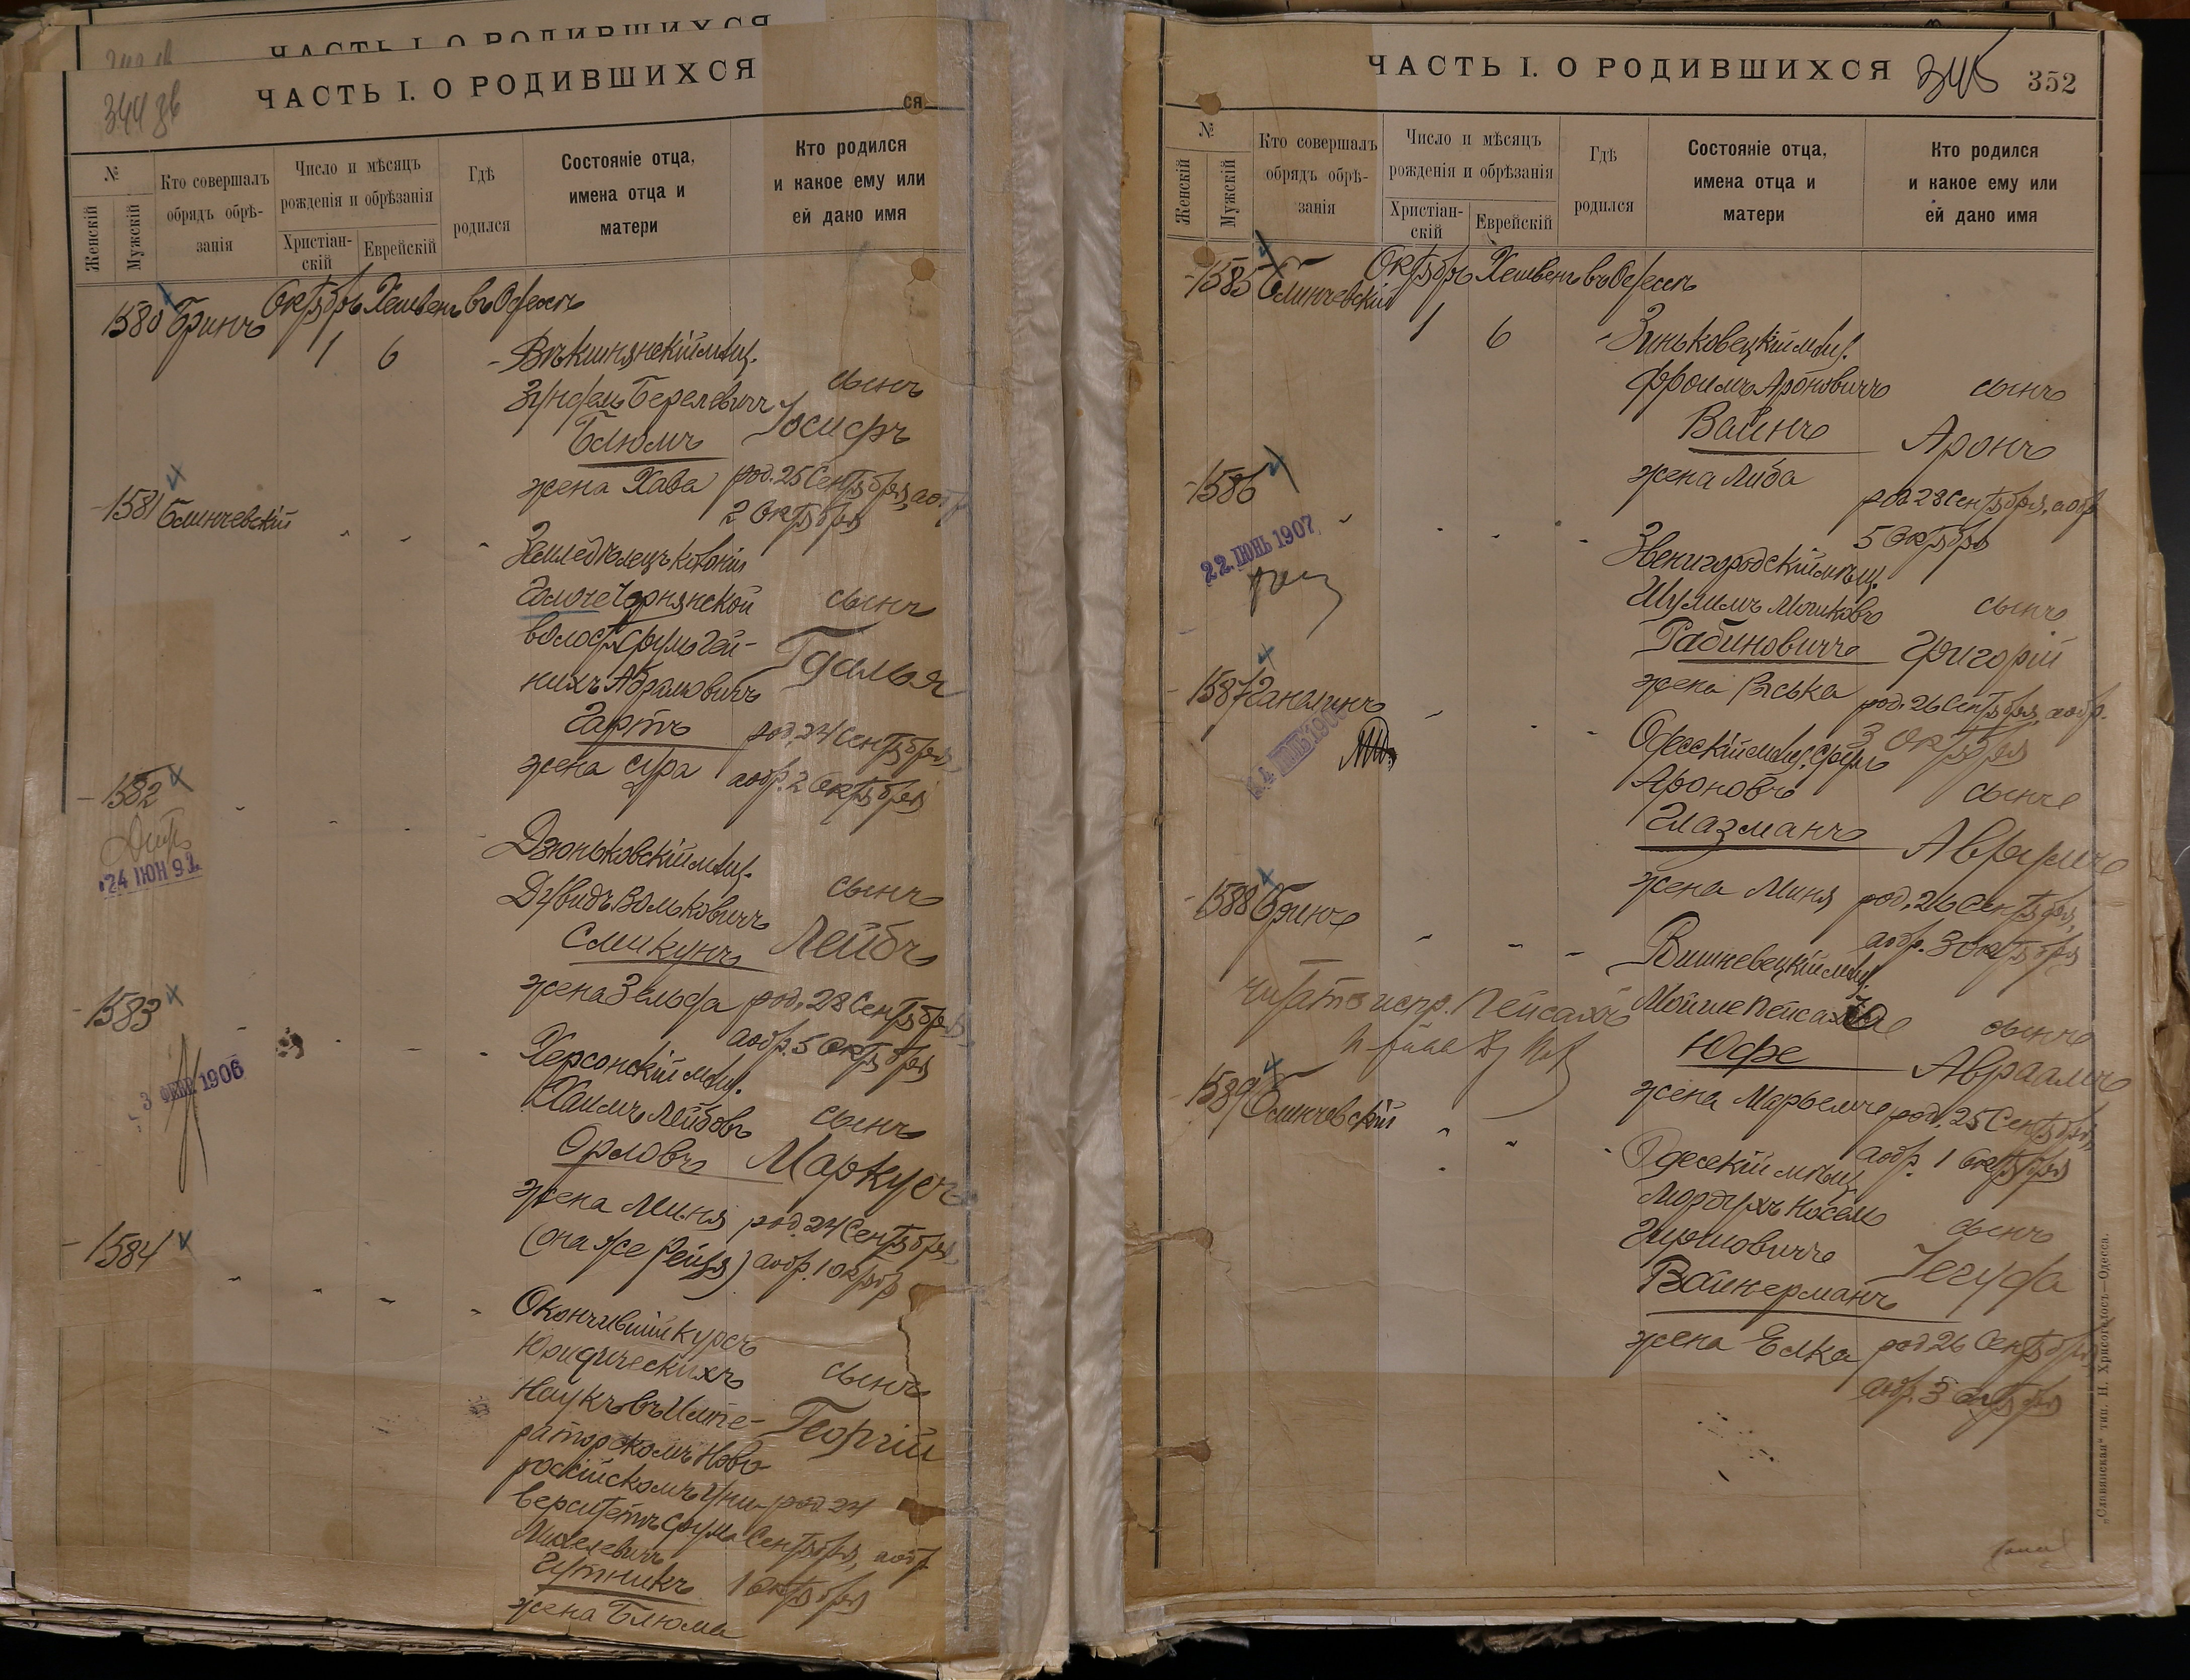 ЧАСТЬ I. О РОДИВШИХСЯ
344 зв
ЧАСТЬ I. О РОДИВШИХСЯ
ся
№
Женскій
Мужскій
Кто совершалъ
обрядъ обрѣ-
занія
Число и мѣсяцъ
рожденія и обрѣзанія
Христіан-
скій
Еврейскій
Гдѣ
родился
Состояніе отца,
имена отца и
матери
Кто родился
и какое ему или
ей дано имя
1580 Бринъ Октябрь Хешвенъ въ Одессѣ
1 6
мѣщ.
Зундель Береловичъ сынъ
Блюмъ Іосифъ
жена Хава род. 25 Сентября, а обр.
2 Октября
1581 Блинчевскій
Земледѣлецъ колоніи
сынъ
волост. Сруль Гей- Гдалья
нихъ Абрамовичъ
Гартъ род. 24 Сентября,
жена Сура а обр. 2 Октября
1582
24 ІЮН 9
Дзюньковскій мѣщ.
Дувидъ Вольковичъ сынъ
Смикунъ Лейбъ
жена Зельда род. 28 Сентября,
а обр. 5 Октября
1583
3 ФЕВ. 1906
Херсонскій мѣщ.
Хаимъ Лейбовъ сынъ
Орловъ Маркусъ
жена Миня род. 24 Сентября,
(она же Рейзя) а обр. 1 Октябр
1584
Окончившій курсъ
Юридическихъ сынъ
Наукъ въ Импе- Георгій
раторскомъ Ново-
россійскомъ Уни- род. 24
верситетѣ Срулъ Сентября, а обр.
Михелевичъ
Гутникъ 1 Октября
жена Блюма
ЧАСТЬ I. О РОДИВШИХСЯ 345 352
№
Женскій
Мужскій
Кто совершалъ
обрядъ обрѣ-
занія
Число и мѣсяцъ
рожденія и обрѣзанія
Христіан-
скій
Еврейскій
Гдѣ
родился
Состояніе отца,
имена отца и
матери
Кто родился
и какое ему или
ей дано имя
1585 Блинчевскій Октябрь Хешвенъ въ Одессѣ
1 6
Зиньковецкій мѣщ.
Фроимъ Ароновичъ сынъ
Вайнъ Аронъ
жена Либа
род. 28 Сентября, а обр.
5 Октября
1586
22. ІЮНЬ 1907
Звенигородскій мѣщ.
Шулимъ Мошковъ сынъ
Рабиновичъ Григорій
жена Риська род. 26 Сентября, а обр.
3 Октября
1587 Ганапинъ
Одесскій мѣщ. Сруль
Ароновъ сынъ
Глазманъ Аврумъ
жена Миня род. 26 Сентября,
а обр. 3 Октября
1588 Бринъ
Вишневецкій мѣщ.
Мойше Пейсахъ сынъ
читать испр. Пейсахъ
Юфе Авраамъ
жена Марьемъ род. 25 Сентября,
а обр. 1 Октября
1589 Блинчевскій
Одесскій мѣщ.
Мордухъ Носемъ сынъ
Гиршовичъ Іегуда
Вайнерманъ
жена Елка род. 26 Сентября
а обр. 3 Октября
„Славянская“ тип. Н. Хрисогелосъ—Одесса.